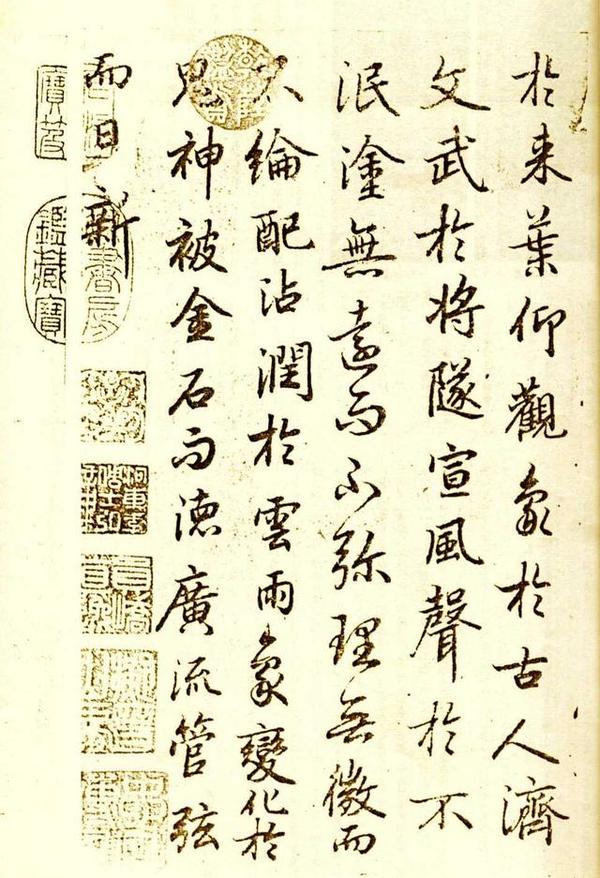 於来葉仰觀象於古人濟
文武於将隊宣風聲於不
泯塗無遠而不弥理無微而
不綸配沾潤於雲雨象變化於
鬼神被金石而德廣流管弦
而日新
寶笈
書房
鑑藏寶